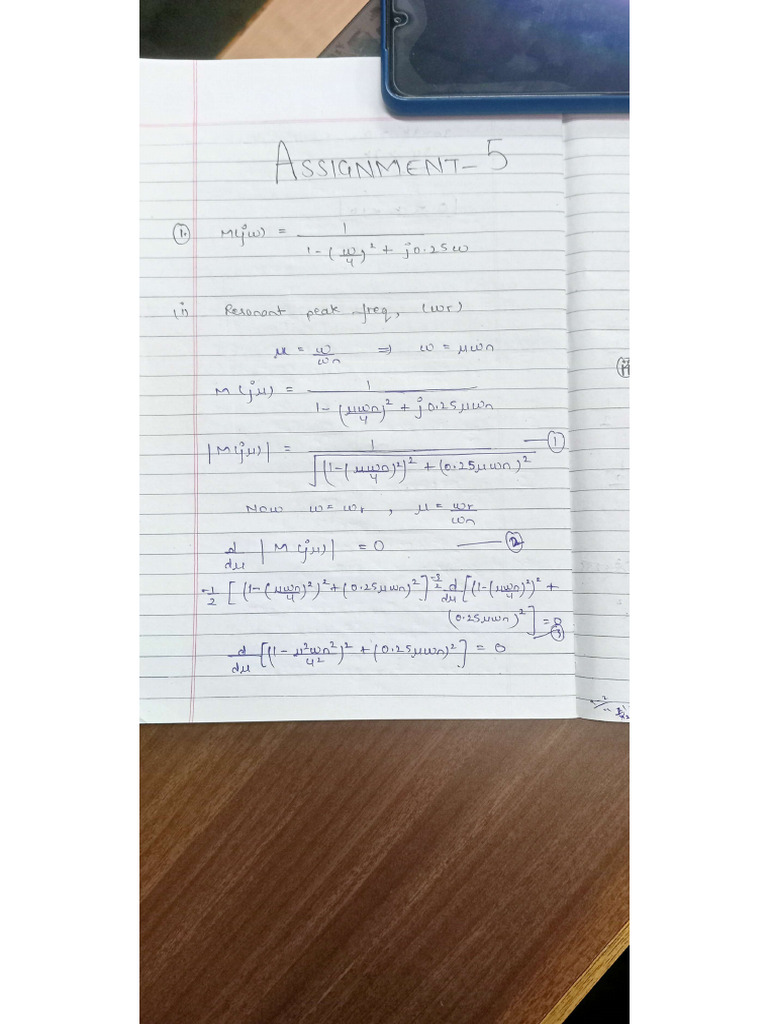 ASSIGNMENT-5
① M(jω) = 1 / (1-(ω/4)² + j0.25ω)
(i) Resonant peak freq, (ωr)
μ = ω/ωn ⇒ ω = μωn
M(jμ) = 1 / (1-(μωn/4)² + j0.25μωn)
|M(jμ)| = 1 / √((1-(μωn/4)²)² + (0.25μωn)²) —①
Now ω=ωr , μ = ωr/ωn
d/dμ |M(jμ)| = 0 —②
-1/2 [(1-(μωn/4)²)² + (0.25μωn)²]^(-3/2) d/dμ [(1-(μωn/4)²)² +
(0.25μωn)²] = 0 —③
d/dμ [(1-μ²ωn²/4²)² + (0.25μωn)²] = 0